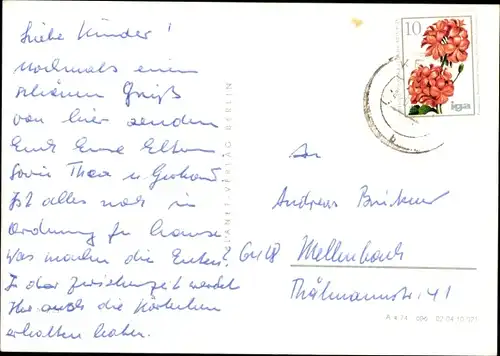 Liebe Kinder!
nochmals einen
schönen Gruß
von hier senden
Euch Eure Eltern
sowie Thea u. Gerhard.
Ist alles noch in
Ordnung zu hause.
Was machen die Enten?
In der zwischenzeit werdet
Ihr auch die Kärtchen
erhalten haben.
PLANET-VERLAG BERLIN
10
iga
An
Andreas
6418 Mellenbach
Thälmannstr. 41